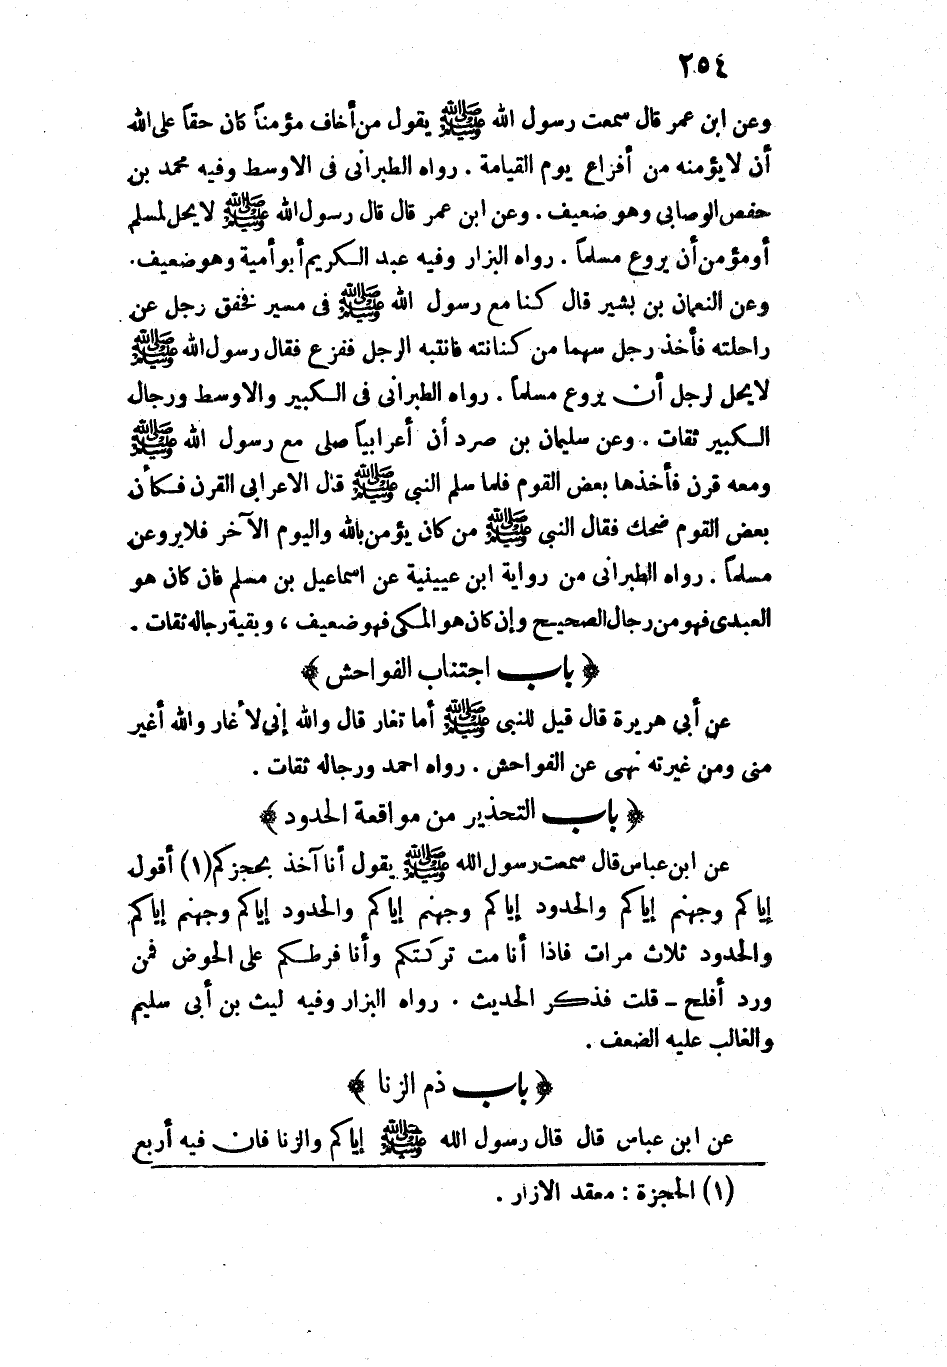 ٢٥٤
وعن ابن عمر قال سمعت رسول الله ﷺ يقول من أخاف مؤمناً كان حقاً على الله
أن لا يؤمنه من أفزاع يوم القيامة . رواه الطبرانى فى الاوسط وفيه محمد بن
حفص الوصابى وهو ضعيف . وعن ابن عمر قال قال رسول الله ﷺ لا يحل لمسلم
أو مؤمن أن يروع مسلماً . رواه البزار وفيه عبد الكريم أبو أمية وهو ضعيف .
وعن النعمان بن بشير قال كنا مع رسول الله ﷺ فى مسير فخفق رجل عن
راحلته فأخذ رجل سهما من كنانته فانتبه الرجل ففزع فقال رسول الله ﷺ
لا يحل لرجل أن يروع مسلماً . رواه الطبرانى فى الكبير والاوسط ورجال
الكبير ثقات . وعن سليمان بن صرد أن أعرابياً صلى مع رسول الله ﷺ
ومعه قرن فأخذها بعض القوم فلما سلم النبي ﷺ قال الاعرابى القرن فكأن
بعض القوم ضحك فقال النبي ﷺ من كان يؤمن بالله واليوم الآخر فلا يروعن
مسلماً . رواه الطبرانى من رواية ابن عيينية عن اسماعيل بن مسلم فان كان هو
العبدى فهو من رجال الصحيح وإن كان هو المكى فهو ضعيف ، وبقية رجاله ثقات .
﴿ باب اجتناب الفواحش ﴾
عن أبى هريرة قال قيل للنبى ﷺ أما تغار قال والله إنى لأغار والله أغير
منى ومن غيرته نهى عن الفواحش . رواه احمد ورجاله ثقات .
﴿ باب التحذير من مواقعة الحدود ﴾
عن ابن عباس قال سمعت رسول الله ﷺ يقول أنا آخذ بحجزكم (١) أقول
إياكم وجهنم إياكم والحدود إياكم وجهنم إياكم والحدود إياكم وجهنم إياكم
والحدود ثلاث مرات فاذا أنا مت تركتكم وأنا فرطكم على الحوض فمن
ورد أفلح - قلت فذكر الحديث . رواه البزار وفيه ليث بن أبى سليم
والغالب عليه الضعف .
﴿ باب ذم الزنا ﴾
عن ابن عباس قال قال رسول الله ﷺ إياكم والزنا فان فيه أربع
(١) الحجزة : معقد الازار .